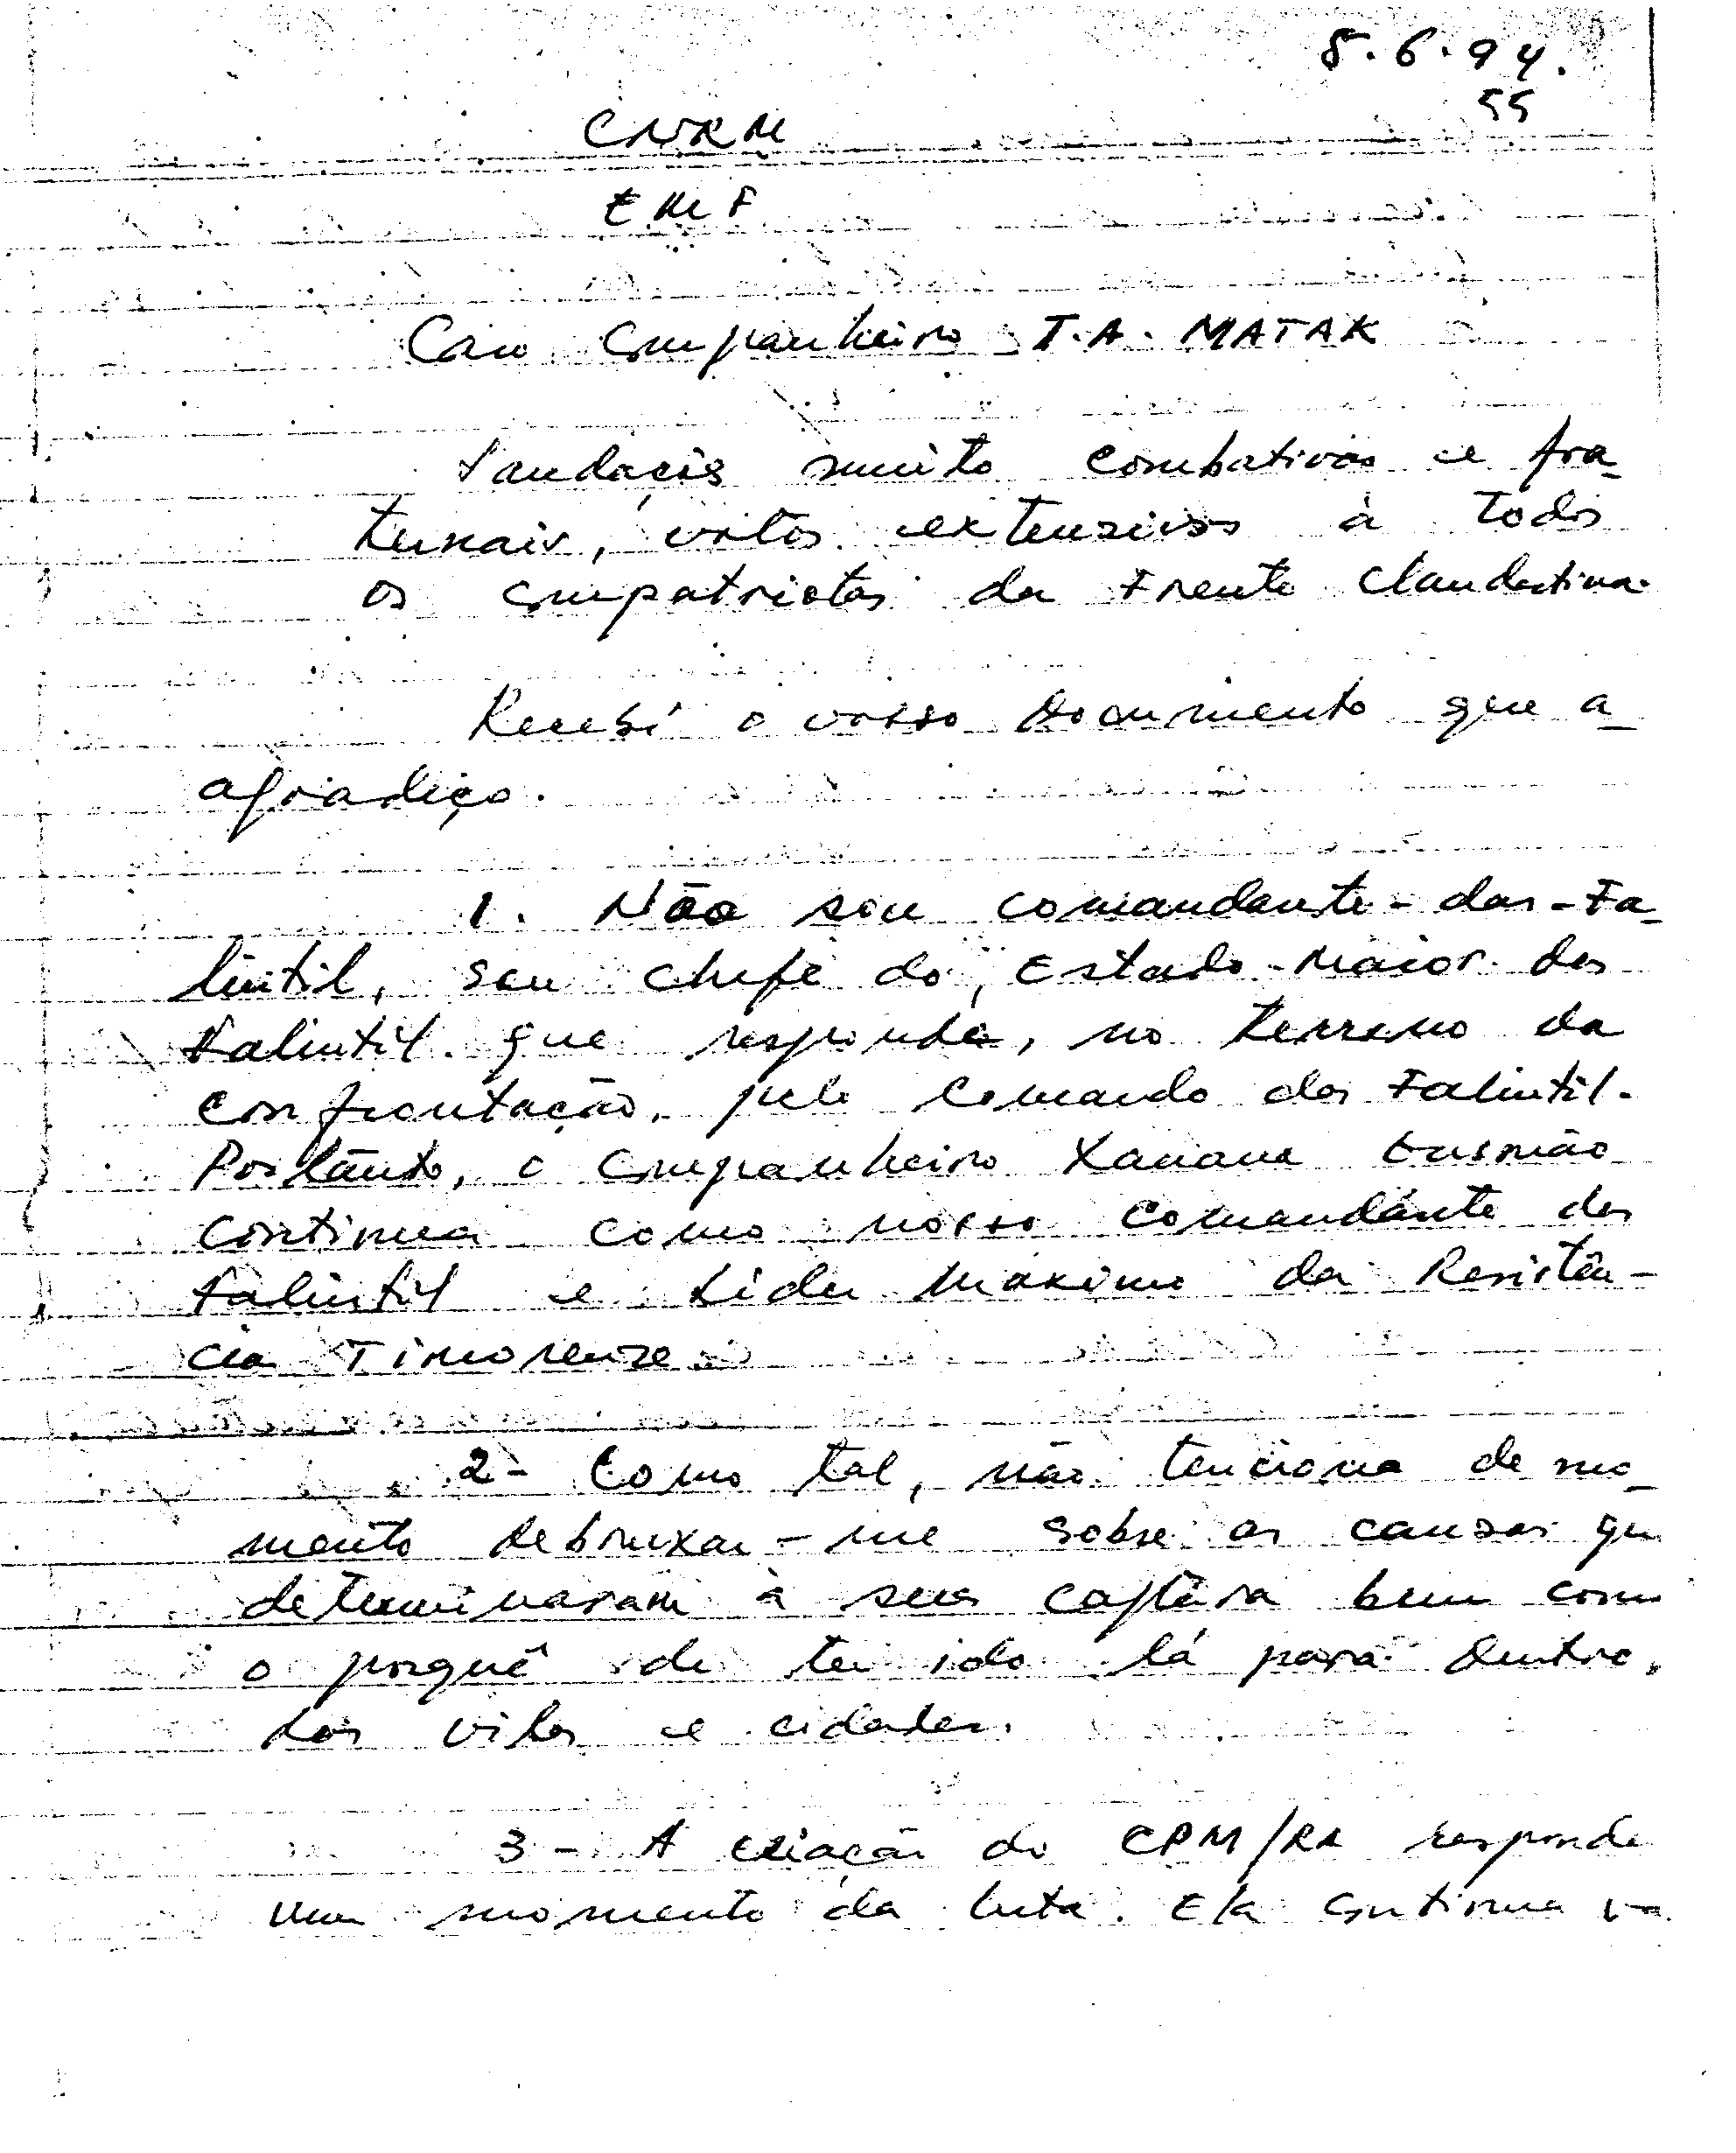 8.6.94.
55
CNRM
EMF
Caro Companheiro T.A. MATAK
Saudações muito combativas e fra_
ternais, votos extensivos à todos
os compatriotas da Frente Clandestina.
Recebi o vosso documento que a_
agradeço.
1. Não sou comandante-das-Fa_
lintil, sou chefe do Estado-Maior das
Falintil que responde, no terreno da
confrontação, pelo Comando das Falintil.
Portânto, o Companheiro Xanana Gusmão
continua como nosso Comandânte das
Falintil e Lider Maximo da Resistên-
cia Timorense
2- Como tal, não tenciono de mo_
mento debruxar-me sobre as causas que
determinaram à sua captura bem como
o porquê de ter ido lá para dentro,
das vilas e cidades.
3- A criação do CPM/RA responde
um momento da luta. Ela continua